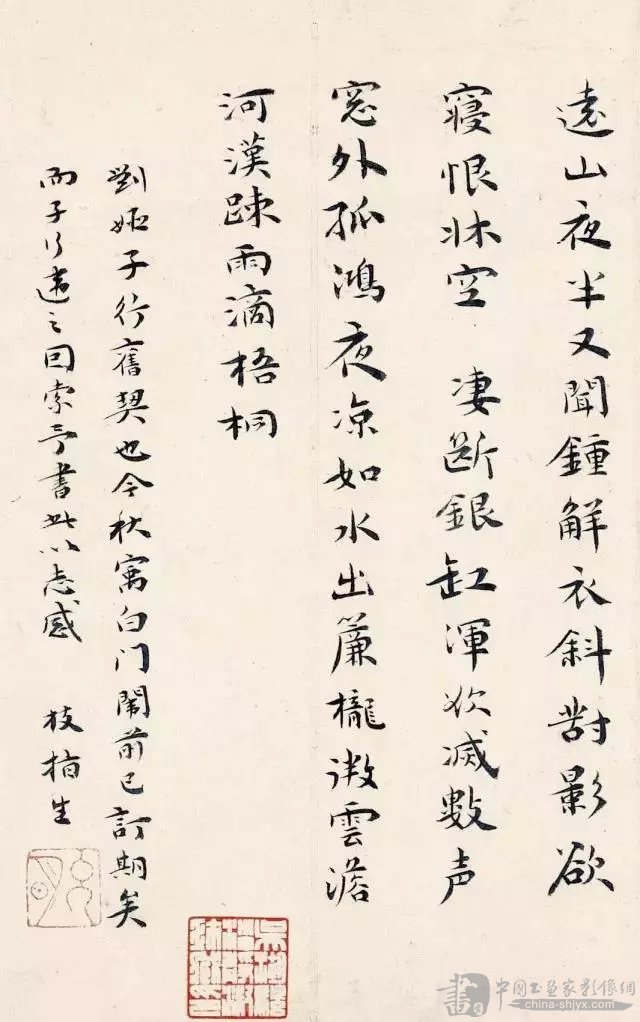 遠山夜半又聞鍾解衣斜對影欲
寢恨牀空 凄斷銀缸渾欲滅數声
窓外孤鴻夜凉如水出簾櫳微雲澹
河漢踈雨滴梧桐
劉姬子行舊契也今秋寓白门闈前已訂期矣
而子行適之回索予書此以志感 枝栖生
中国书画家影像網
china-shjyx.com